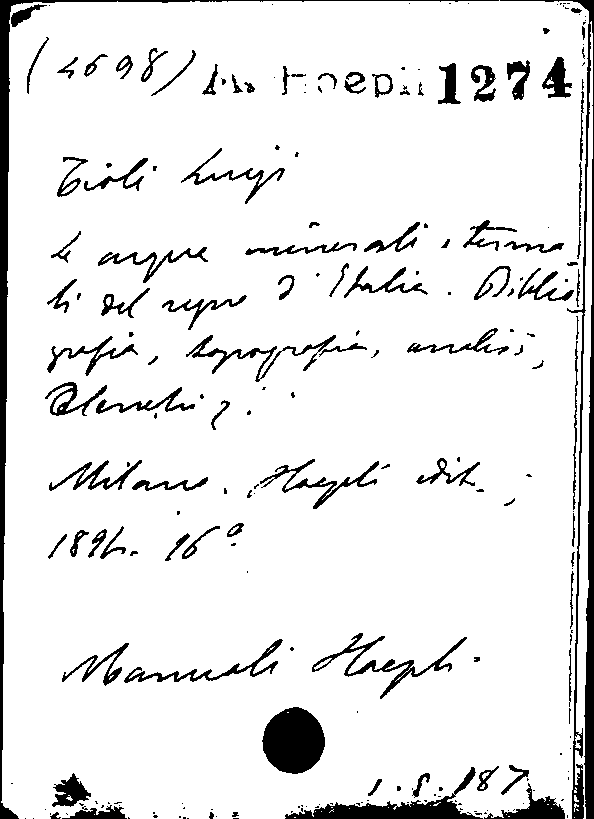 (4698) M. Hoepli 1274
Tioli Luigi
Le acque minerali e terma-
li del regno d'Italia. Biblio
grafia, topografia, analisi,
Milano. Hoepli edit.;
16º
Manuali Hoepli.
1.8.187